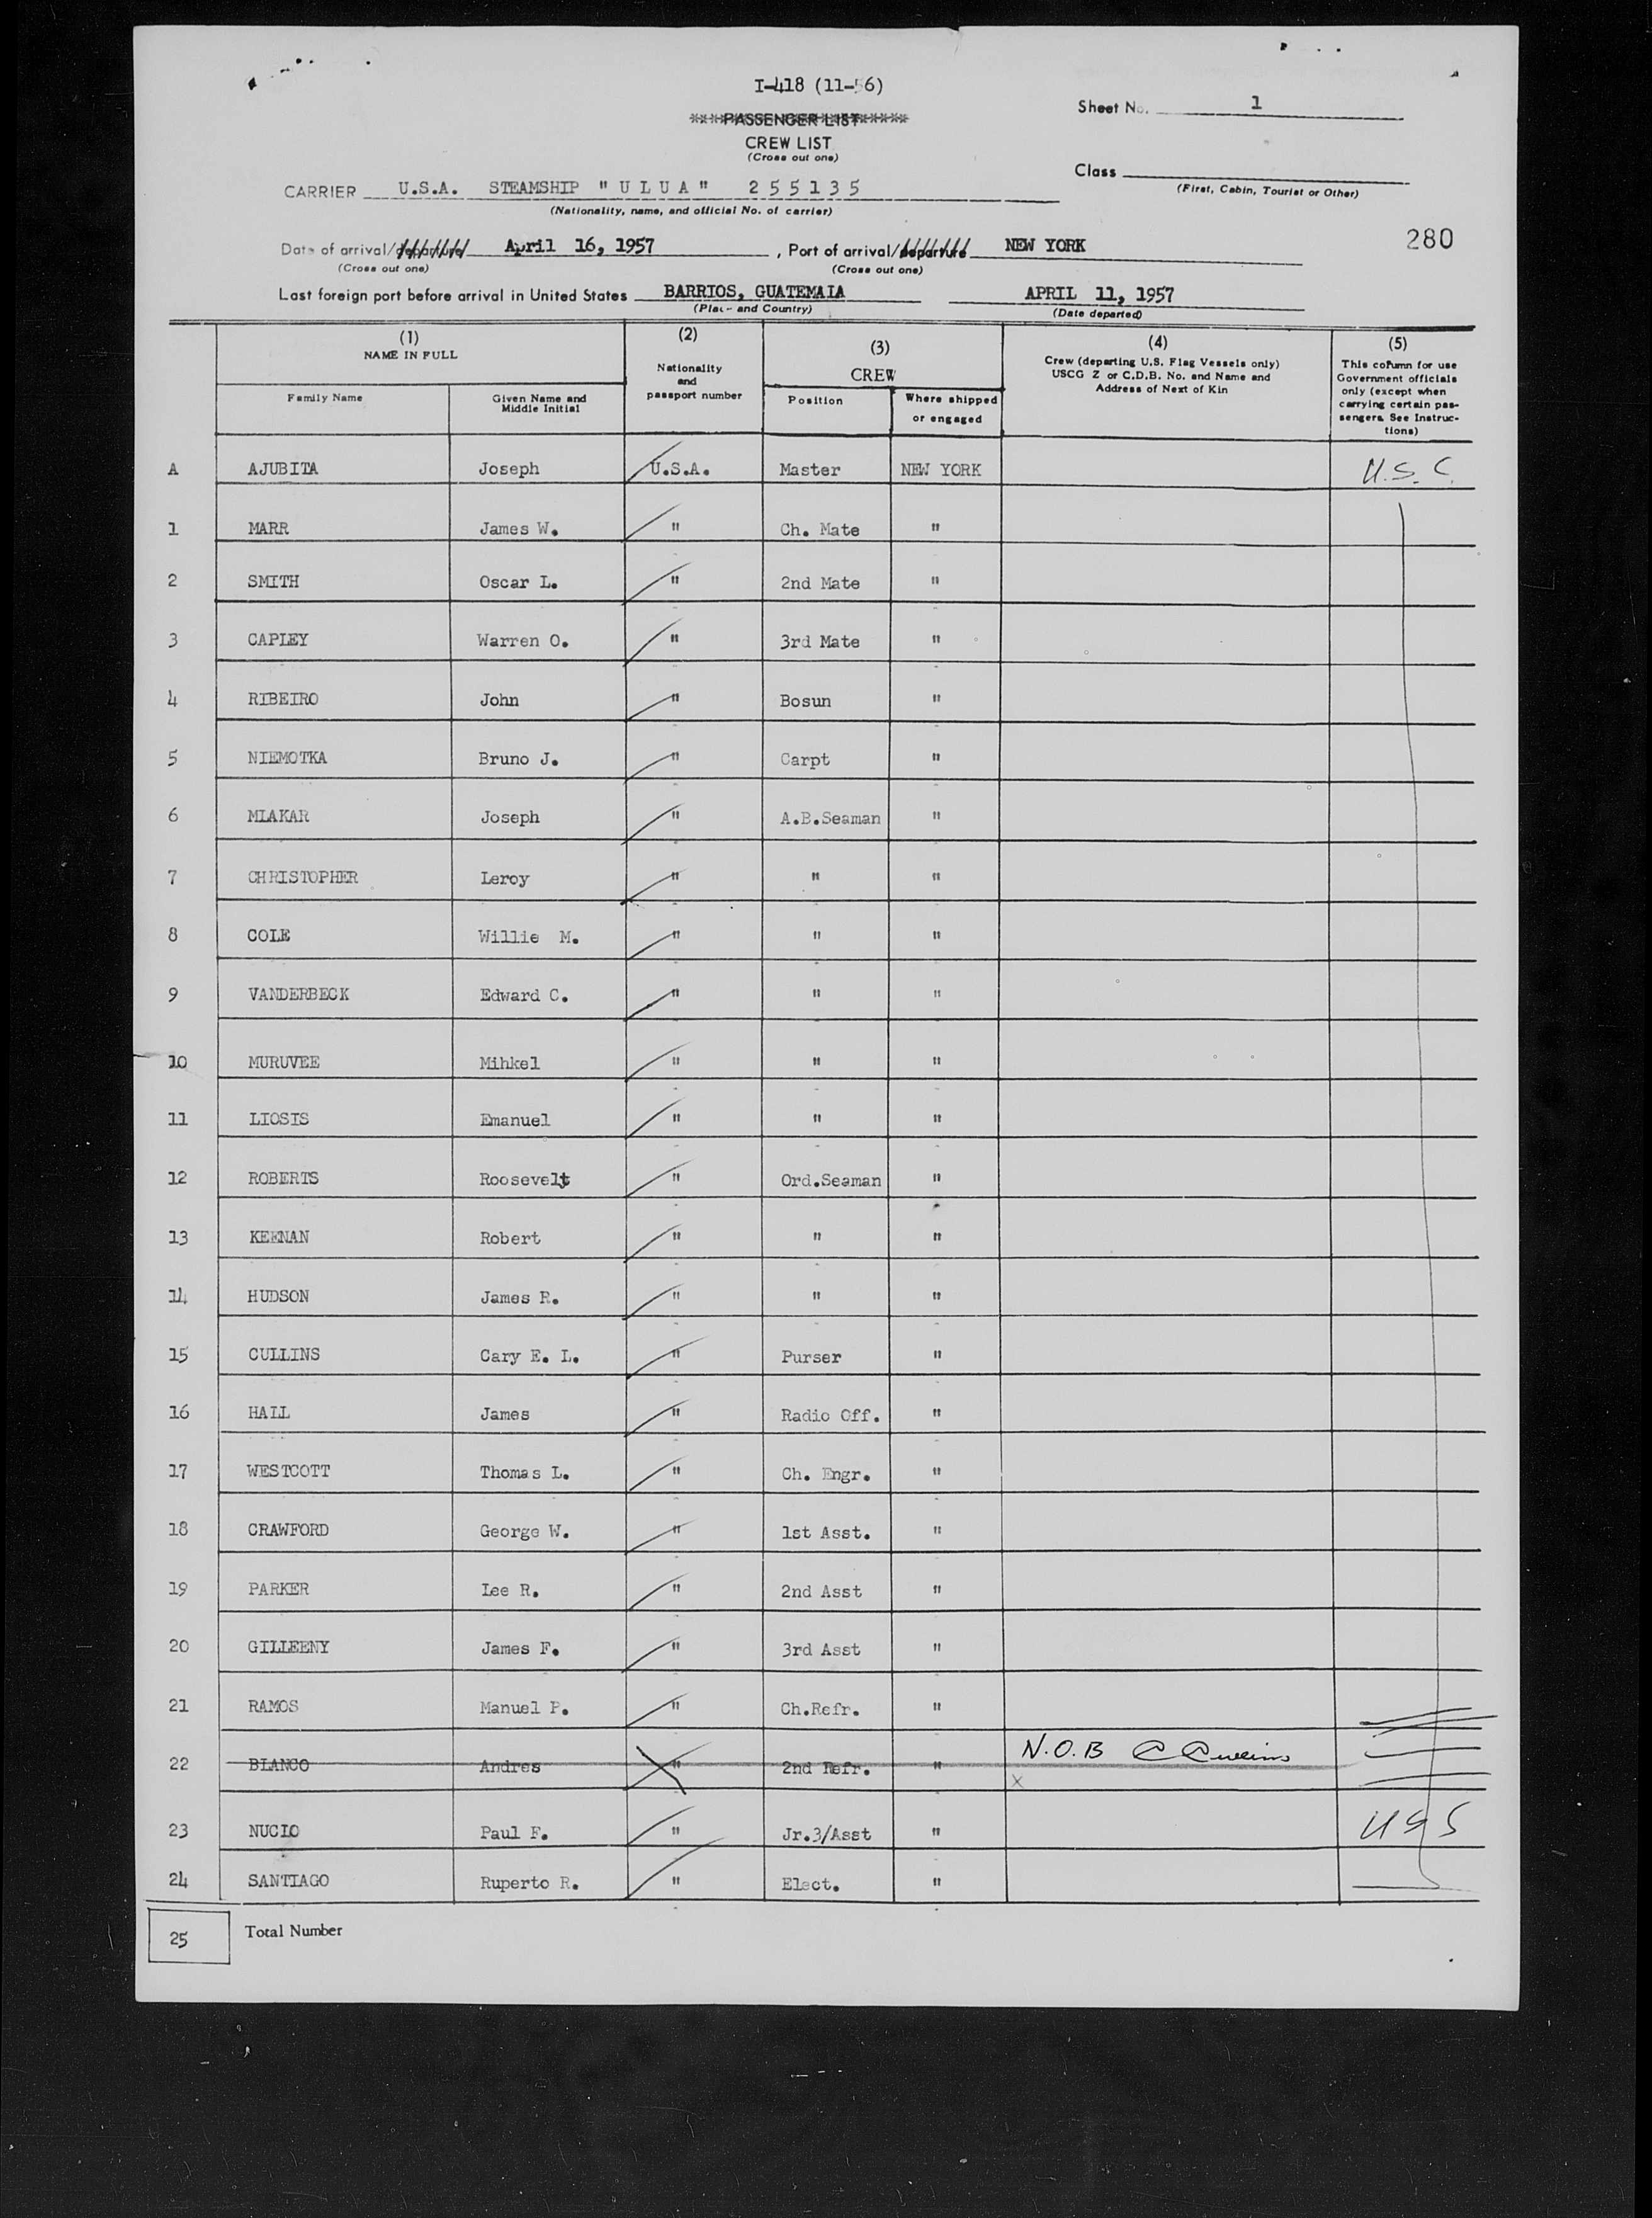 I-418 (11-56)
Sheet No. 1
PASSENGER LIST
CREW LIST
(Cross out one)
Class
(First, Cabin, Tourist or Other)
CARRIER U.S.A. STEAMSHIP "ULUA" 255135
(Nationality, name, and official No. of carrier)
280
Date of arrival/departure April 16, 1957, Port of arrival/departure NEW YORK
(Cross out one) (Cross out one)
Last foreign port before arrival in United States BARRIOS, GUATEMALA APRIL 11, 1957
(Place and Country) (Date departed)
(1) (2) (3) (4) (5)
NAME IN FULL
Family Name
Given Name and
Middle Initial
Nationality
and
passport number
CREW
Position
Where shipped
or engaged
Crew (departing U.S. Flag Vessels only)
USCG Z or C.D.B. No. and Name and
Address of Next of Kin
This column for use
Government officials
only (except when
carrying certain pas-
sengers. See Instruc-
tions)
A AJUBITA Joseph U.S.A. Master NEW YORK U.S.C.
1 MARR James W. " Ch. Mate "
2 SMITH Oscar L. " 2nd Mate "
3 CAPLEY Warren O. " 3rd Mate "
4 RIBEIRO John " Bosun "
5 NIEMOTKA Bruno J. " Carpt "
6 MLAKAR Joseph " A.B.Seaman "
7 CHRISTOPHER Leroy " " "
8 COLE Willie M. " " "
9 VANDERBECK Edward C. " " "
10 MURUVEE Mihkel " " "
11 LIOSIS Emanuel " " "
12 ROBERTS Roosevelt " Ord.Seaman "
13 KEENAN Robert " " "
14 HUDSON James R. " " "
15 CULLINS Cary E. L. " Purser "
16 HALL James " Radio Off. "
17 WESTCOTT Thomas L. " Ch. Engr. "
18 CRAWFORD George W. " 1st Asst. "
19 PARKER Lee R. " 2nd Asst "
20 GILLEENY James F. " 3rd Asst "
21 RAMOS Manuel P. " Ch.Refr. "
22 BLANCO Andres " 2nd Refr. " N.O.B C Cullins
x
23 NUCIO Paul F. " Jr.3/Asst "
24 SANTIAGO Ruperto R. " Elect. "
25 Total Number